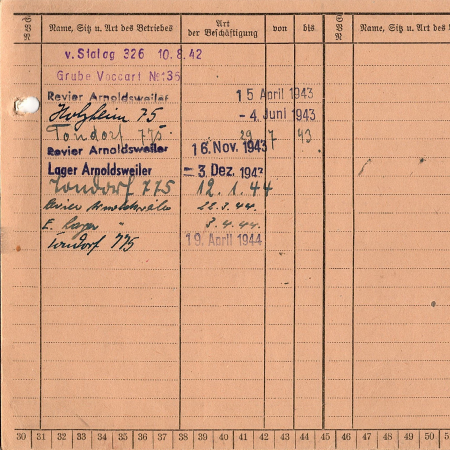 Name, Sitz u. Art des Betriebes Art der Beschäftigung von bis Name, Sitz u. Art des
v. Stalag 326 10.8.42
Grube Voccart No: 35
Revier Arnoldsweiler 15 April 1943
Holzheim 75 - 4. Juni 1943
Tondorf 775. 29 7 43
Revier Arnoldsweiler 16. Nov. 1943
Lager Arnoldsweiler - 3. Dez. 1943
Tondorf 775 12.1.44
Revier Arnoldsweiler 22.3.44.
E. Lager " 3.4.44.
Tondorf 775 19. April 1944
30 31 32 33 34 35 36 37 38 39 40 41 42 43 44 45 46 47 48 49 50